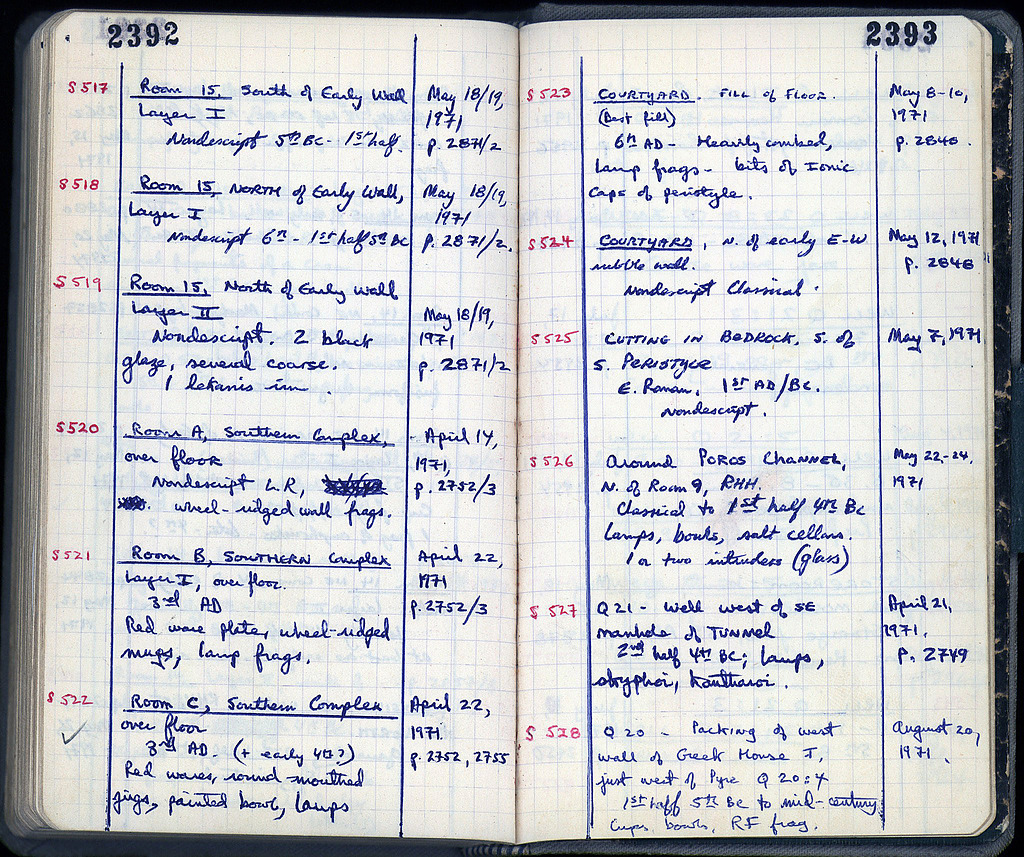 2392
S 517 Room 15, South of Early Wall May 18/19,
Layer I 1971
Nondescript 5th BC - 1st half. p. 2871/2
S 518 Room 15 NORTH of Early Wall, May 18/19,
Layer I 1971
Nondescript 6th - 1st half 5th BC p. 2871/2.
S 519 Room 15, North of Early Wall
Layer II May 18/19,
Nondescript. 2 black 1971
glaze, several coarse. p. 2871/2
1 lekanis rim.
S 520 Room A, Southern Complex, April 14,
over floor 1971,
Nondescript L.R, p. 2752/3
wheel-ridged wall frags.
S 521 Room B, SOUTHERN Complex April 22,
Layer I, over floor. 1971
3rd AD p. 2752/3
Red ware plates, wheel-ridged
mugs, lamp frags.
S 522 Room C, Southern Complex April 22,
over floor 1971.
3rd AD (+ early 4th?) p. 2752, 2755
Red wares, round-mouthed
jugs, painted bowl, lamps
2393
S 523 COURTYARD. FILL OF FLOOR. May 8-10,
(Last fill) 1971
6th AD - Heavily combed, p. 2848.
Lamp frags - bits of Ionic
caps of peristyle.
S 524 COURTYARD, N. of early E-W May 12, 1971
rubble wall. p. 2848
Nondescript Classical.
S 525 CUTTING IN BEDROCK, S. of May 7, 1971
S. PERISTYLE
E. Roman, 1st AD/BC.
Nondescript.
S 526 Around POROS CHANNEL, May 22-24,
N. of Room 9, RHH. 1971
Classical to 1st half 4th BC
Lamps, bowls, salt cellars.
1 or two intruders (glass)
S 527 Q 21 - Well west of SE April 21,
manhole of TUNNEL 1971.
2nd half 4th BC; lamps, p. 2749
skyphoi, kantharoi.
S 528 Q 20 - Packing of west August 20,
wall of Greek House I, 1971.
just west of Pyre Q 20:4
1st half 5th BC to mid-century
Cups, bowls, RF frag.